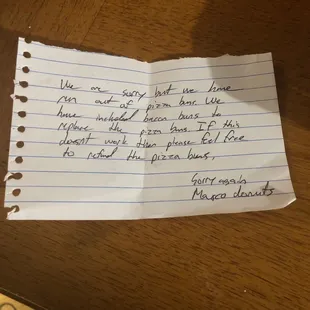 We are sorry but we have
run out of pizza buns. We
have included bacca buns to
replace the pizza buns. If this
doesnt work then please feel free
to refund the pizza buns.
Sorry again
Marco donuts